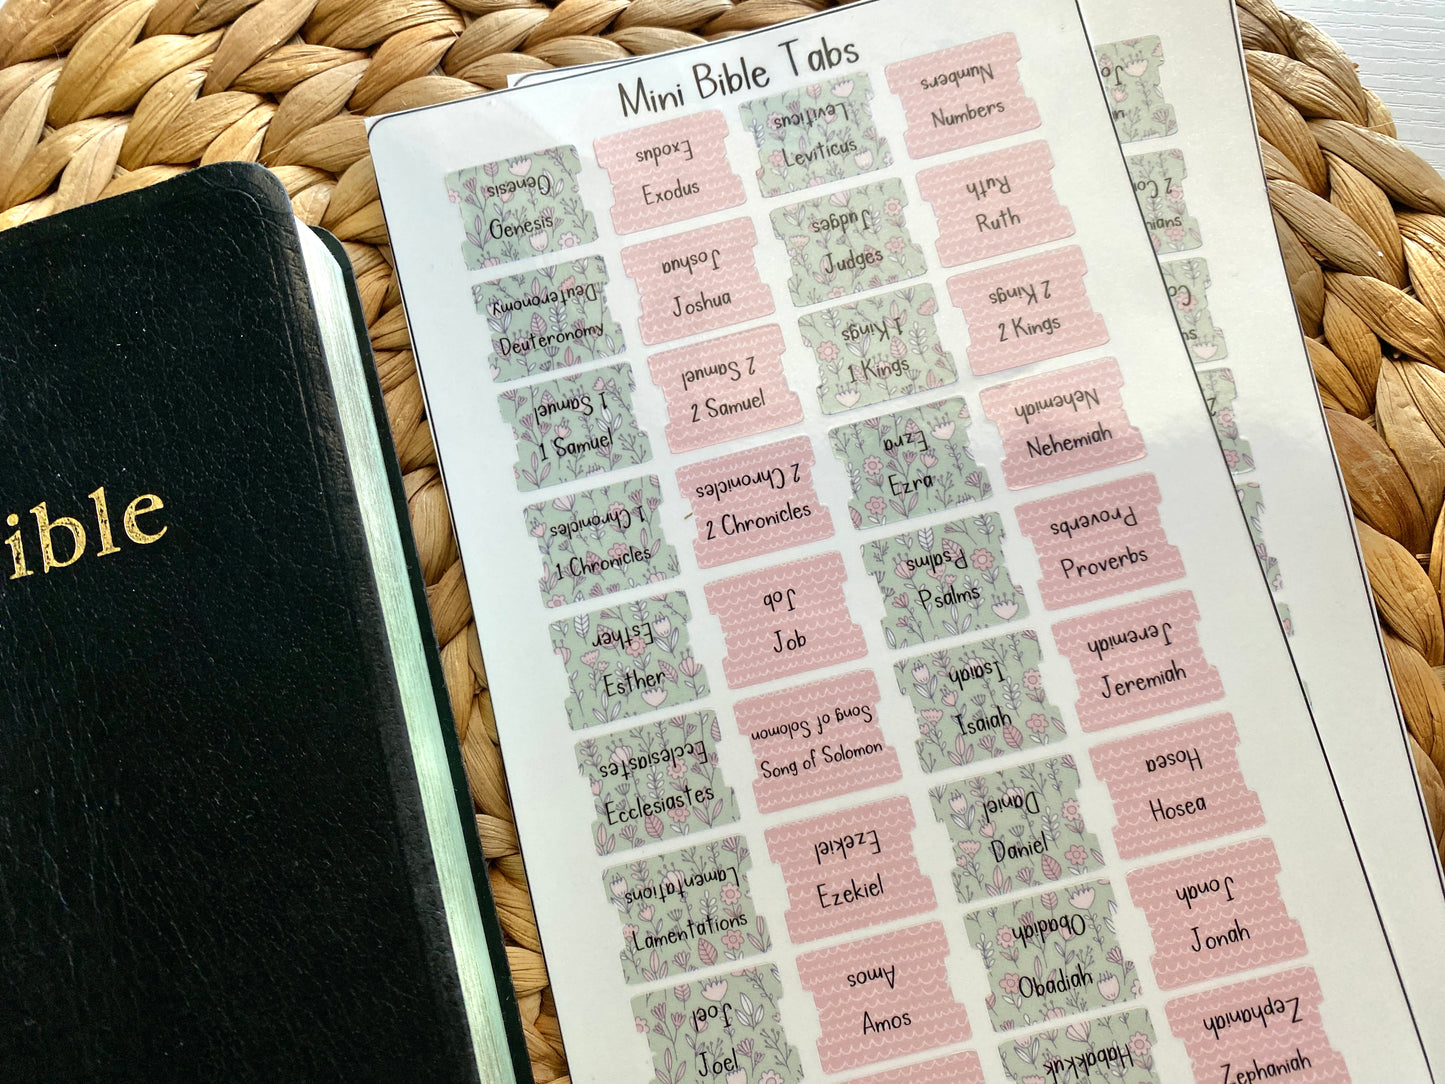 Mini Bible Tabs
Genesis
Genesis
Exodus
Exodus
Leviticus
Leviticus
Numbers
Numbers
Deuteronomy
Deuteronomy
Joshua
Joshua
Judges
Judges
Ruth
Ruth
1 Samuel
1 Samuel
2 Samuel
2 Samuel
1 Kings
1 Kings
2 Kings
2 Kings
1 Chronicles
1 Chronicles
2 Chronicles
2 Chronicles
Ezra
Ezra
Nehemiah
Nehemiah
Esther
Esther
Job
Job
Psalms
Psalms
Proverbs
Proverbs
Ecclesiastes
Ecclesiastes
Song of Solomon
Song of Solomon
Isaiah
Isaiah
Jeremiah
Jeremiah
Lamentations
Lamentations
Ezekiel
Ezekiel
Daniel
Daniel
Hosea
Hosea
Joel
Joel
Amos
Amos
Obadiah
Obadiah
Jonah
Jonah
Habakkuk
Zephaniah
Zephaniah
ible
2 Co
nians